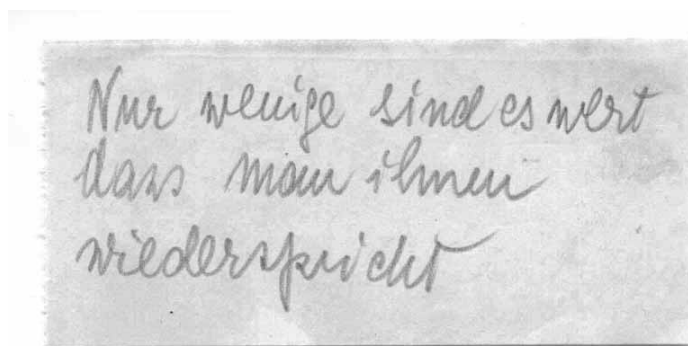 Nur wenige sind es wert
dass man ihnen
wiederspricht